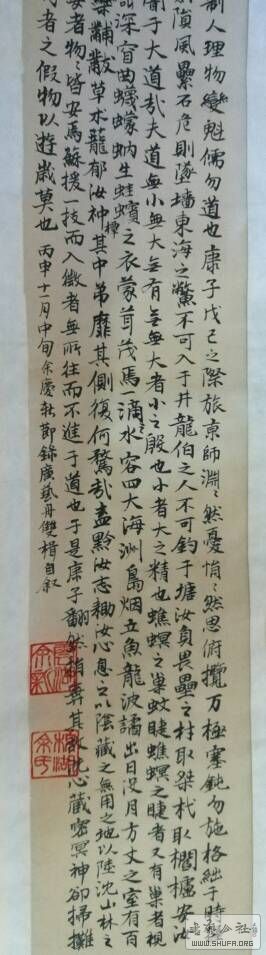 制人理物變魁儒勿道也康子戊己之際旅京師淵〻然憂悁〻然思俯攬万極塞鈍勿施格絀于時
則隕風壘石危則墜墻東海之鱉不可入于井龍伯之人不可釣于塘汝負畏壘之材取桀杙取欂櫨安汝
于大道哉夫道無小無大無有無無大者小之殷也小者大之精也蟭螟之巢蚊睫蟭螟之睫者又有巢者視
深窅曲蠛蠓蚋生蛙蠙之衣蒙茸茂焉一滴之水容四大海洲島烟立魚龍波譎出日沒月方丈之室有百
樂黼黻草木龍郁汝神樟其中弟靡其側復何騖哉盍黔汝志鋤汝心息之以陰藏之無用之地以陸沈山林之
安者物物皆安焉蘇援一技而入微者無所往而不進于道也于是康子翻然捐棄其故洗心藏密冥神卻掃攤
者之假物以遊歲莫也 丙申十一月中旬余慶新節錄廣藝舟雙楫自敘
書藝公社
WWW.SHUFA.ORG